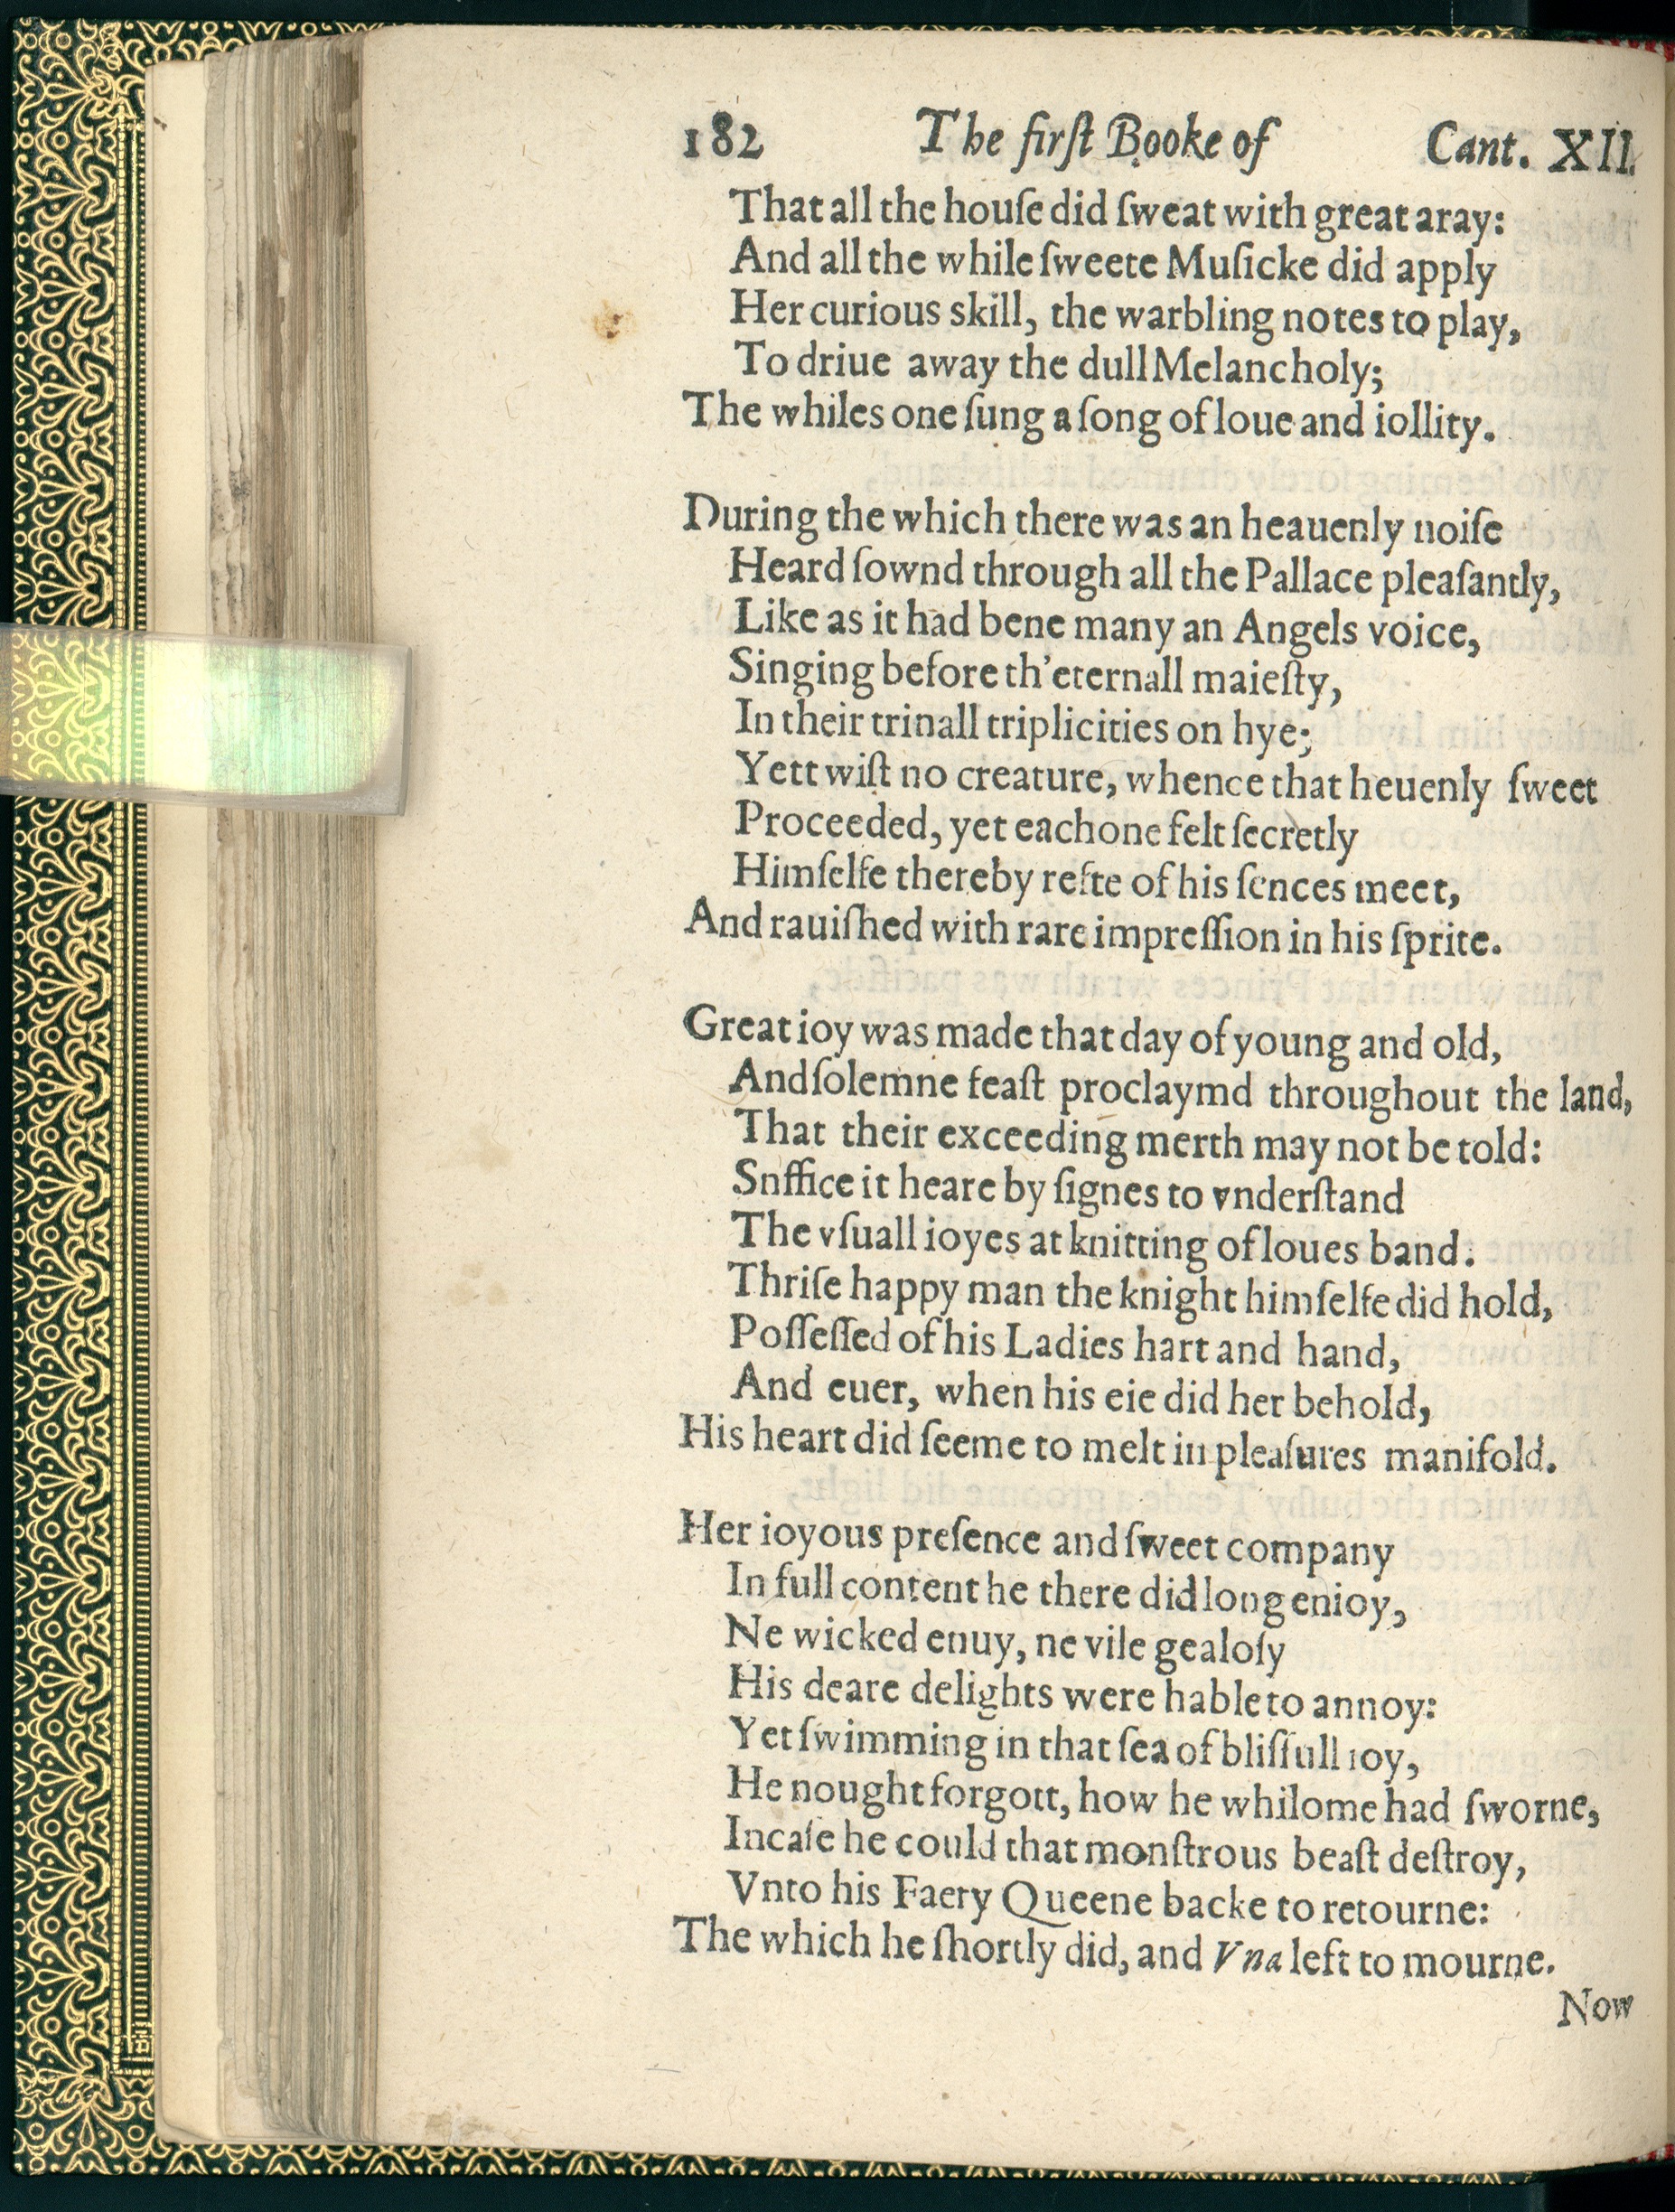 182 The firſt Booke of Cant. XII.
That all the houſe did ſweat with great aray:
And all the while ſweete Muſicke did apply
Her curious skill, the warbling notes to play,
To driue away the dull Melancholy;
The whiles one ſung a ſong of loue and iollity.
During the which there was an heauenly noiſe
Heard ſownd through all the Pallace pleaſantly,
Like as it had bene many an Angels voice,
Singing before th'eternall maieſty,
In their trinall triplicities on hye;
Yett wiſt no creature, whence that heuenly ſweet
Proceeded, yet eachone felt ſecretly
Himſelfe thereby refte of his ſences meet,
And rauiſhed with rare impreſſion in his ſprite.
Great ioy was made that day of young and old,
And ſolemne feaſt proclaymd throughout the land,
That their exceeding merth may not be told:
Snffice it heare by ſignes to vnderſtand
The vſuall ioyes at knitting of loues band.
Thriſe happy man the knight himſelfe did hold,
Poſſeſſed of his Ladies hart and hand,
And euer, when his eie did her behold,
His heart did ſeeme to melt in pleaſures manifold.
Her ioyous preſence and ſweet company
In full content he there did long enioy,
Ne wicked enuy, ne vile gealoſy
His deare delights were hable to annoy:
Yet ſwimming in that ſea of bliſfull ioy,
He nought forgott, how he whilome had ſworne,
In caſe he could that monſtrous beaſt deſtroy,
Vnto his Faery Queene backe to retourne:
The which he ſhortly did, and Vna left to mourne.
Now